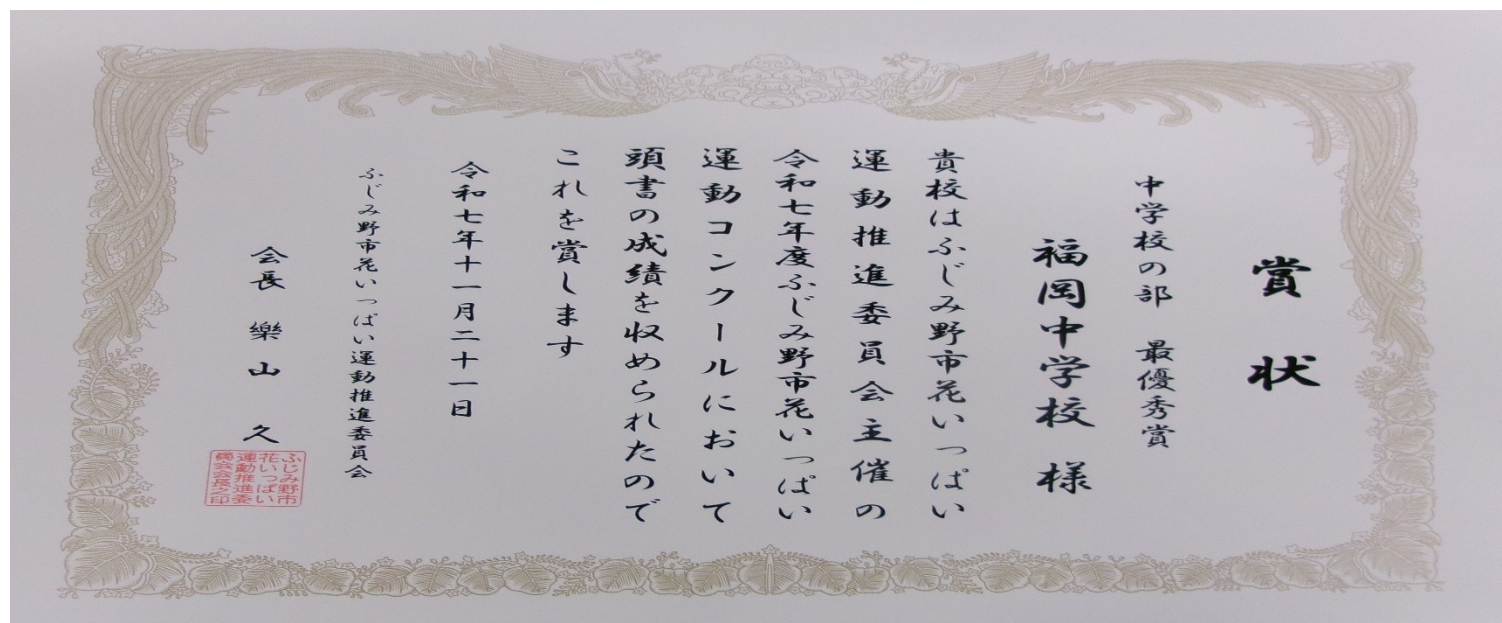 賞状
中学校の部 最優秀賞
福岡中学校 様
貴校はふじみ野市花いっぱい
運動推進委員会主催の
令和七年度ふじみ野市花いっぱい
運動コンクールにおいて
頭書の成績を収められたので
これを賞します
令和七年十一月二十一日
ふじみ野市花いっぱい運動推進委員会
会長 樂山 久
ふじみ野市
花いっぱい
運動推進委
員会会長之印